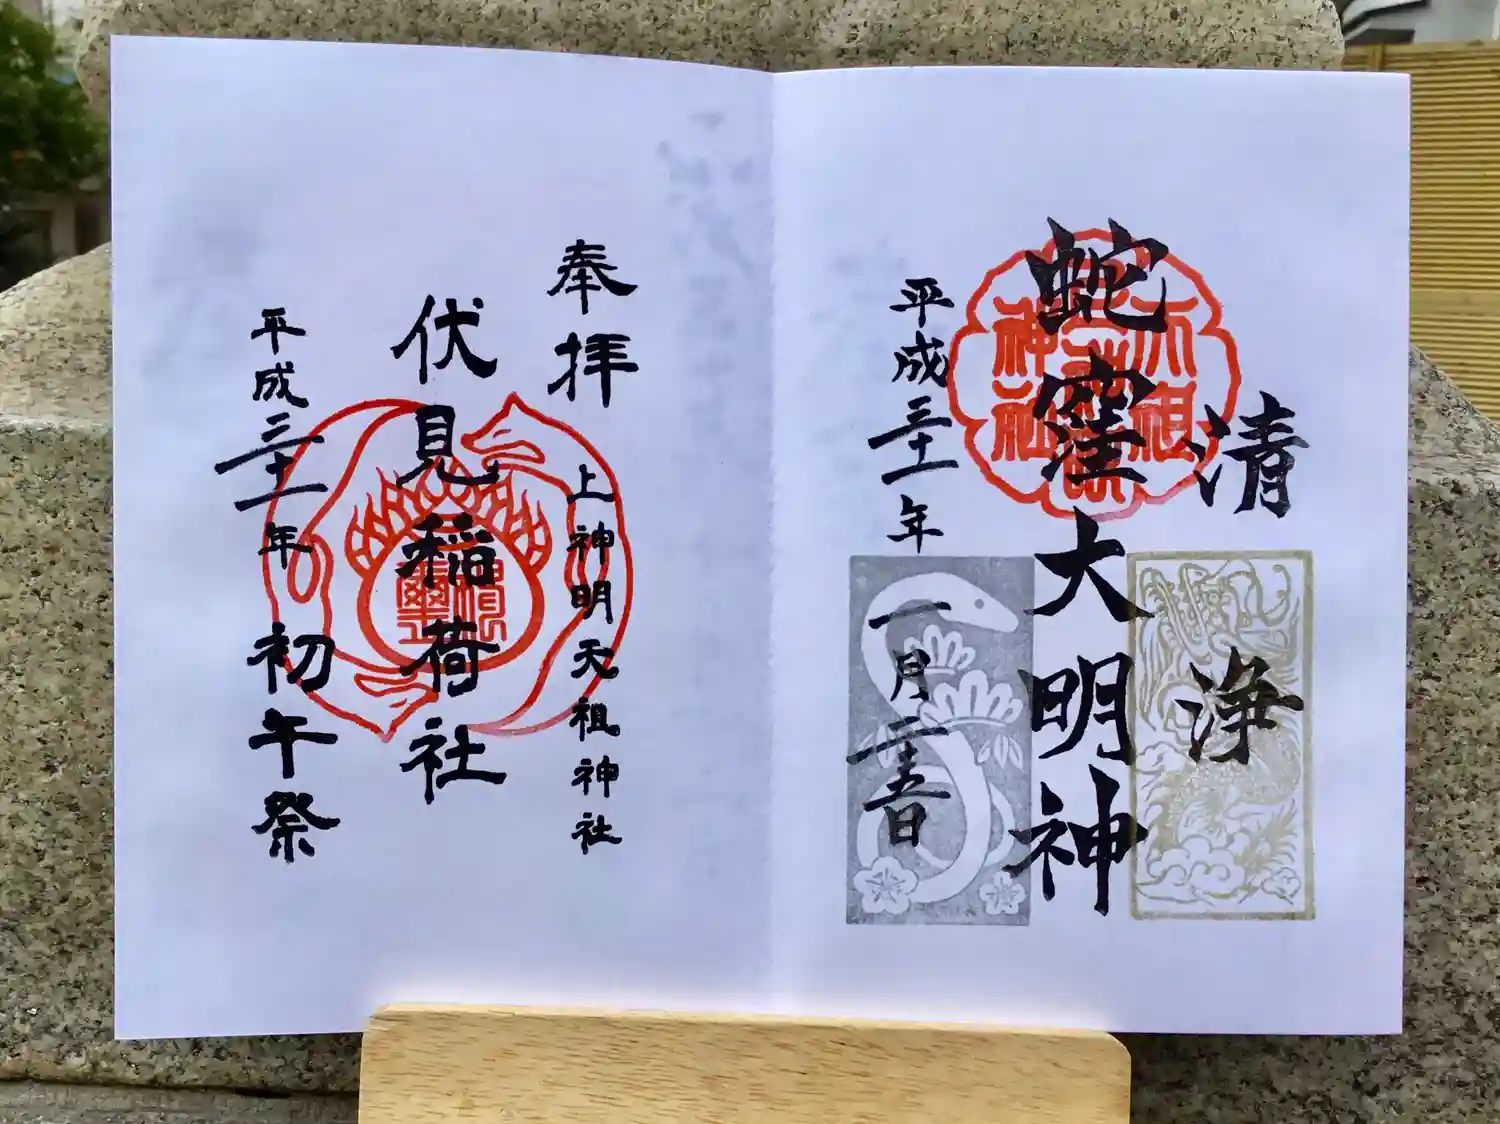 清浄
蛇窪大明神
平成三十一年一月二十五日
天祖神社
奉拝
上神明天祖神社
伏見稲荷社
平成三十一年初午祭